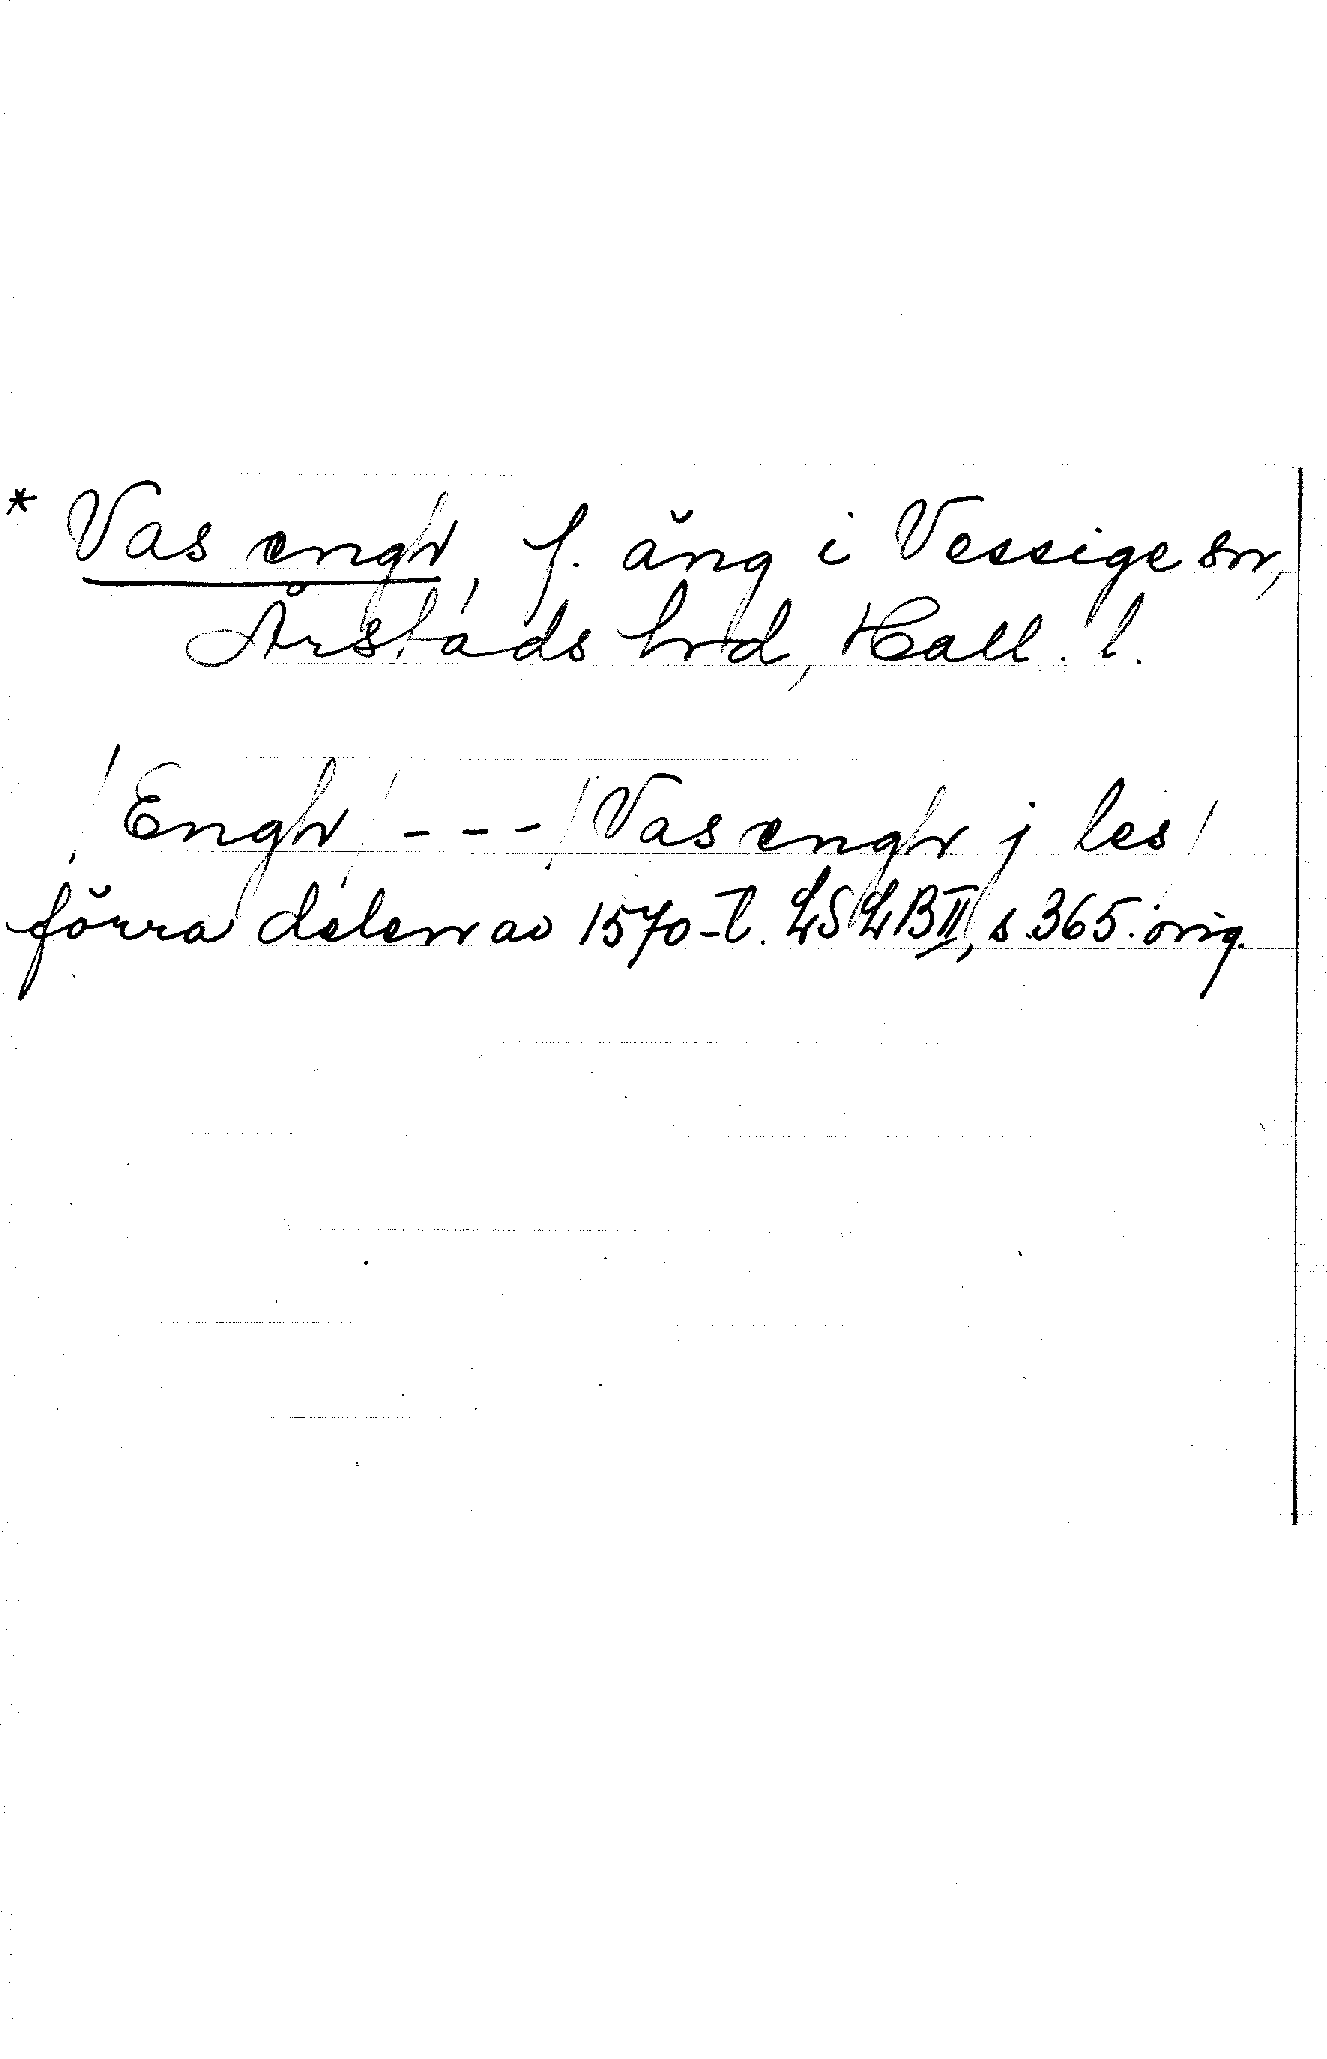 * Vas engh, f. äng i Vessige sn,
Årstads hrd, Hall. l.
/Engh/ --- /Vas engh j les/
förra delen av 1570-t. LSLB II, s. 365. orig.